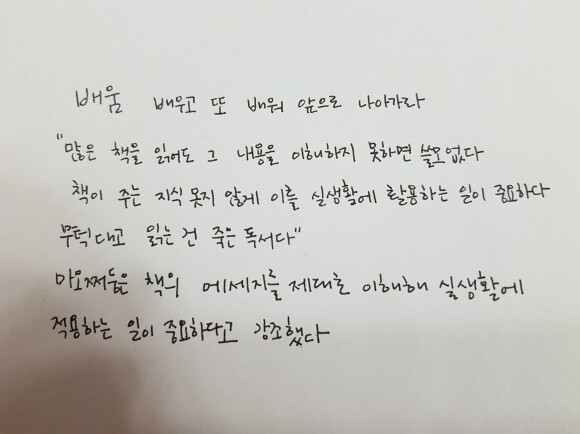 배움 배우고 또 배워 앞으로 나아가라
"많은 책을 읽어도 그 내용을 이해하지 못하면 쓸모없다
책이 주는 지식 못지 않게 이를 실생활에 활용하는 일이 중요하다
무턱대고 읽는 건 죽은 독서다"
마오쩌둥은 책의 메세지를 제대로 이해해 실생활에
적용하는 일이 중요하다고 강조했다